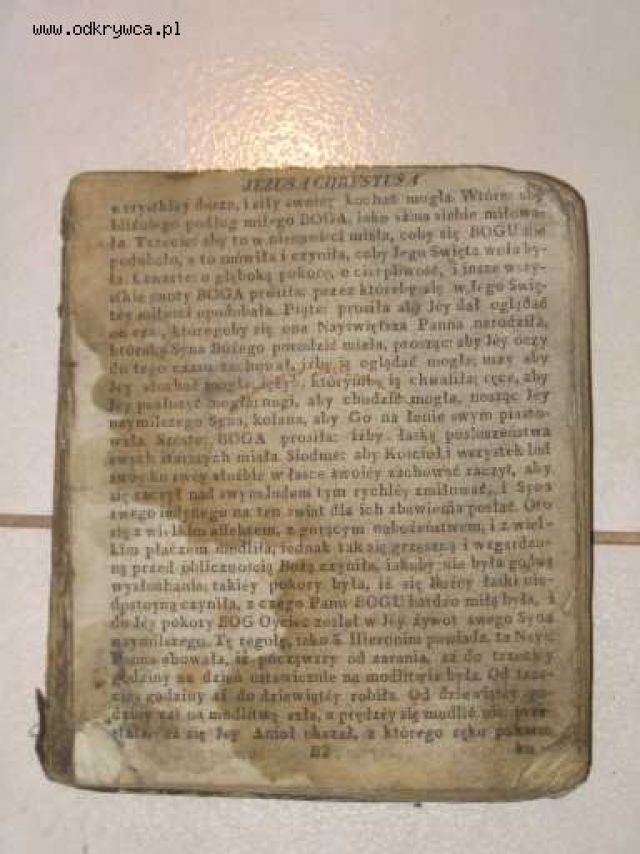 www.odkrywca.pl
JEZUSA CHRYSTUSA
wszystkiey dusze, i siły swoiey kochać mogła. Wtóre: aby
bliźniego podług miłego BOGA, iako sama siebie miłowa-
ła. Trzecie: aby to w nienawiści miała, coby się BOGU nie
podobało, a to mówiła i czyniła, coby Jego Święta wola by-
ła. Czwarte: o głęboką pokorę, o cierpliwość, i insze wszy-
stkie cnoty BOGA prosiła: przez któreby się w Jego Świę-
tey miłości upodobała. Piąte: prosiła aby Jéy dał oglądać
on czas, któregoby się ona Nayświętsza Panna narodziła,
któraby Syna Bożego porodzić miała, prosząc: aby Jéy oczy
do tego czasu zachował, iżby ią oglądać mogła; uszy aby
Jéy słuchać mogła, ięzyk, którymby ią chwaliła; ręce, aby
Jéy posłużyć mogła: nogi, aby chodzić mogła, nosząc Jéy
naymilszego Syna, kolana, aby Go na łonie swym piasto-
wała. Szoste: BOGA prosiła: iżby łaskę posłuszeństwa
swych starszych miała. Siodme: aby Kościoł i wszystek lud
swoy ku swéy służbie w łasce swoiéy zachować raczył, aby
się raczył nad swym ludem tym rychléy zmiłować, i Syna
swego iedynego na ten świat dla ich zbawienia posłać. Oto
się z wielkim affektem, z gorącym nabożeństwem, i z wiel-
kim płaczem modliła, iednak tak się grzeszną i wzgardzo-
ną przed oblicznością Bożą czyniła, iakoby nie była godną
wysłuchania: takiey pokory była, iż się Bożey łaski nie-
dostoyną czyniła, z czego Panu BOGU bardzo miłą była, i
do Jéy pokory BOG Oyciec zesłał w Jéy żywot swego Syna
naymilszego. Tę regułę, iako S. Hieronim powiada, ta Nayś:
Panna chowała, iż począwszy od zarania, aż do trzeciey
godziny na dzień ustawicznie na modlitwie była. Od trze-
ciey godziny aż do dziewiątéy robiła. Od dziewiątéy go-
dziny zaś na modlitwę szła, a prędzéy się modlić nie prze-
stała, aż się Jey Anioł ukazał, z którego ręku pokarm
B2